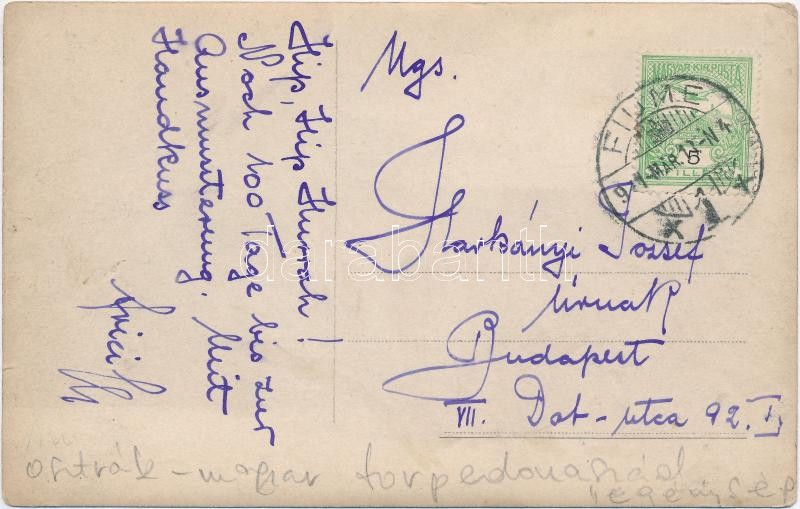 Hip, Hip Hurrah!
Noch 100 Tage bis zur
Ausmusterung. Mit
Handkuss
Mgs.
Harkányi József
Úrnak
Budapest
VII. Dob-utca 92. I.
MAGYAR KIR. POSTA
5
FIUME
osztrák-magyar torpedónászád
legénység
darabanth